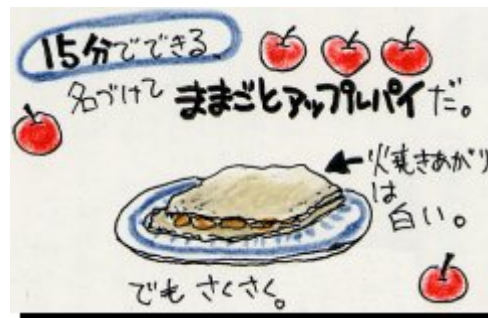 15分でできる
名づけて ままごとアップルパイだ。
焼きあがり
は
白い。
でも さくさく。